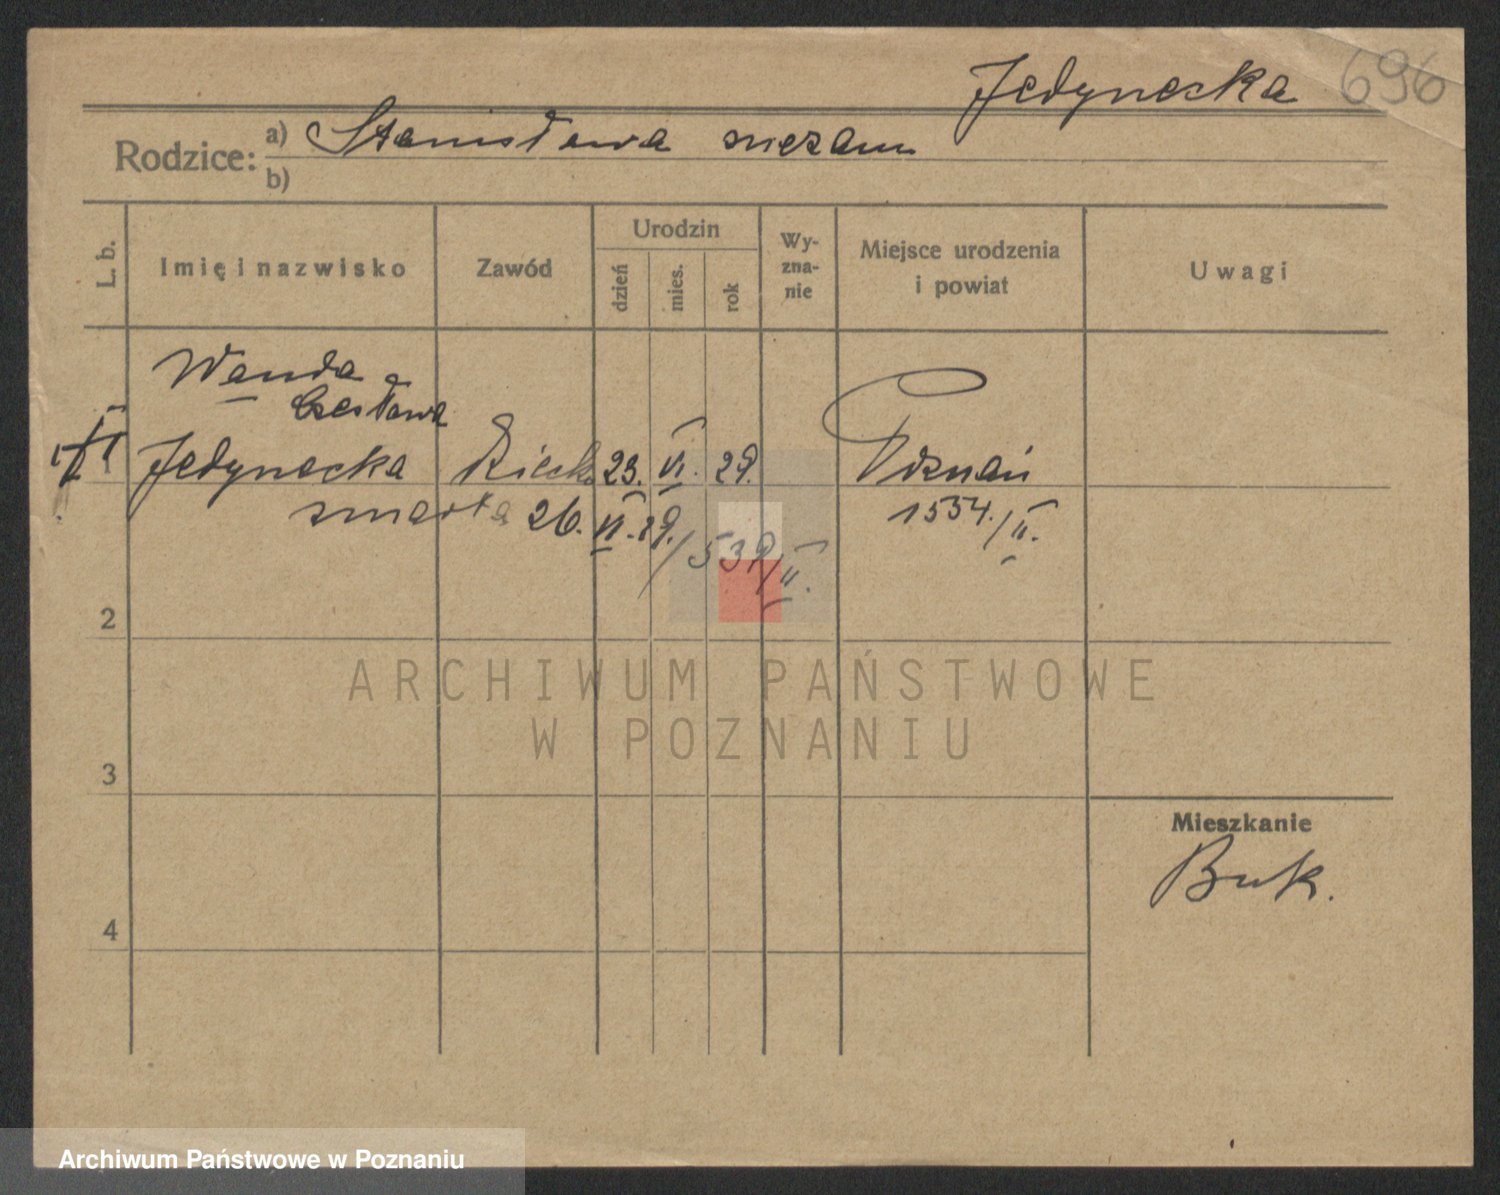 Jedynecka 696
Rodzice: a) Stanisława niezam
b)
L. b.
Imię i nazwisko
Zawód
Urodzin
dzień
mies.
rok
Wy-
zna-
nie
Miejsce urodzenia
i powiat
Uwagi
Wanda
Czesława
1 Jedynecka 23. VI. 29. Poznań
zmarła 26. VI. 29. / 539/II. 1554./II.
2
3
4
Mieszkanie
Buk.
ARCHIWUM PAŃSTWOWE
W POZNANIU
Archiwum Państwowe w Poznaniu